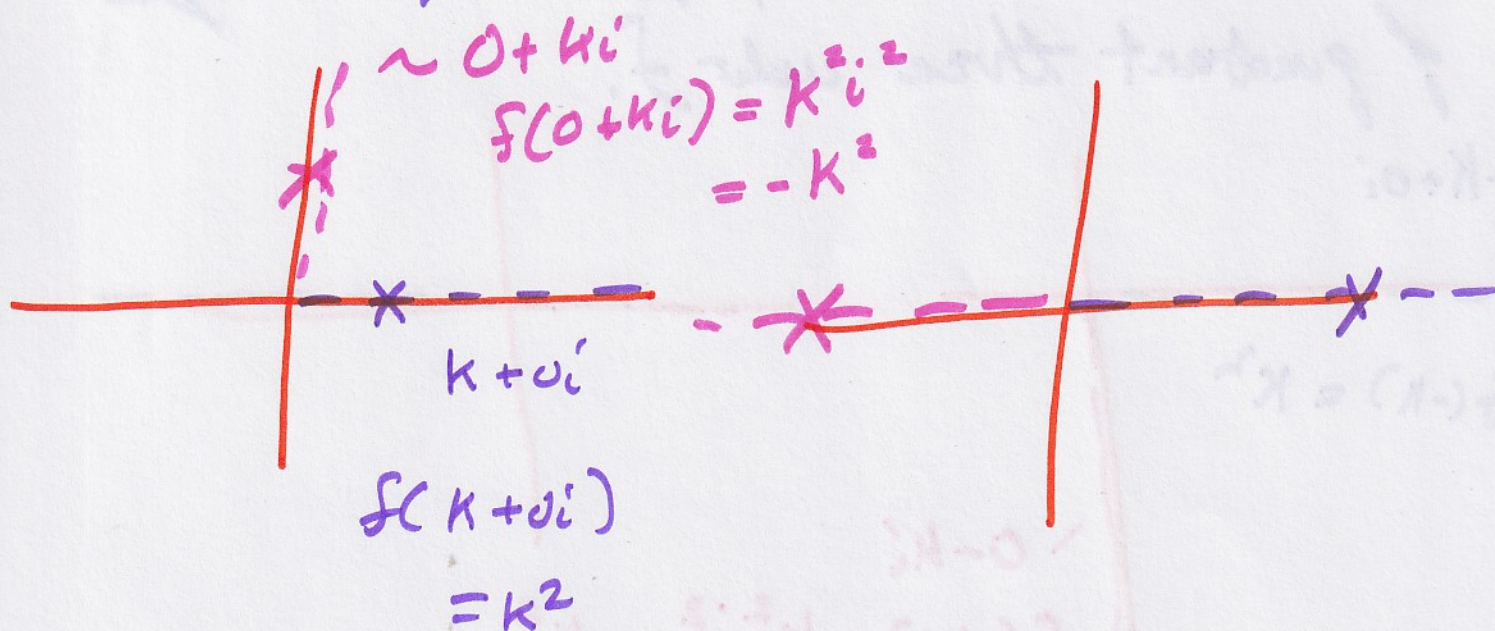 ~ 0+ki
f(0+ki) = k²i²
= -k²
k+0i
f(k+0i)
= k²